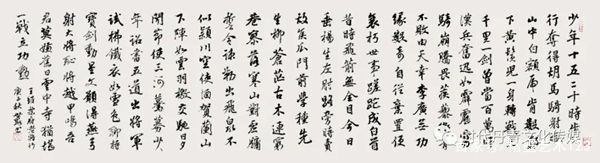 少年十五二十時步
行奪得胡馬騎射殺
山中白額虎肯數鄴
下黃鬚兒一身轉戰三
千里一劍曾當百萬師
漢兵奮迅如霹靂虜
騎崩騰畏蒺藜衛青
不敗由天幸李廣無功
緣數奇自從棄置便
衰朽世事蹉跎成白首
昔時飛箭無全目今日
垂楊生左肘路旁時賣
故侯瓜門前學種先
生柳蒼茫古木連窮
巷寥落寒山對虛牖
誓令疏勒出飛泉不
似潁川空使酒賀蘭山
下陣如雲羽檄交馳日夕
聞節使三河募少
年詔書五道出將軍
試拂鐵衣如雪色聊持
寶劍動星文願得燕弓
射大將恥將越甲鳴吾
君莫嫌舊日雲中守猶堪
一戰立功勳
时代丹青文化传媒